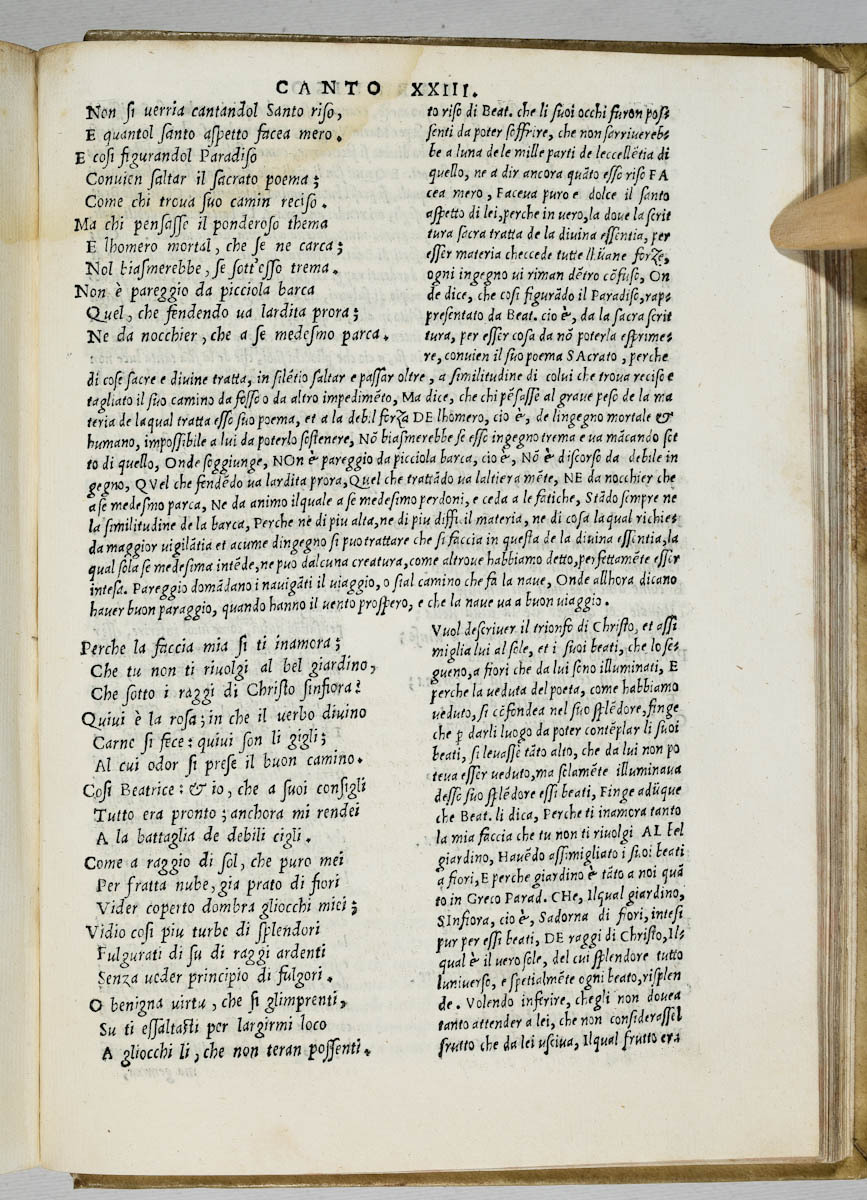 CANTO XXIII.
Non si verria cantandol Santo riso,
E quantol santo aspetto facea mero.
E cosi figurandol Paradiso
Convien saltar il sacrato poema;
Come chi trova suo camin reciso.
Ma chi pensasse il ponderoso thema
E lhomero mortal, che se ne carca;
Nol biasmerebbe, se sott'esso trema.
Non è pareggio da picciola barca
Quel, che fendendo ua lardita prora;
Ne da nocchier, che a se medesmo parca.
to riso di Beat. che li suoi occhi furon pos-
senti da poter soffrire, che non serriuereb-
be a luna dele mille parti de leccellētia di
quello, ne a dir ancora quāto esso riso FA
cea mero, Faceua puro e dolce il santo
aspetto di lei, perche in uero, la doue la scrit
tura sacra tratta de la diuina essentia, per
esser materia checcede tutte lhuāne forze,
ogni ingegno ui riman dētro cōfuso, On
de dice, che cosi figurādo il Paradiso, rap-
presentato da Beat. cio è, da la sacra scrit
tura, per esser cosa da nō poterla esprime-
re, conuien il suo poema SAcrato, perche
di cose sacre e diuine tratta, in silētio saltar e passar oltre, a similitudine di colui che troua reciso e
tagliato il suo camino da fosso o da altro impedimēto, Ma dice, che chi pēsasse al graue peso de la ma
teria de laqual tratta esso suo poema, et a la debil forza DE lhomero, cio è, de lingegno mortale &
humano, impossibile a lui da poterlo sostenere, Nō biasmerebbe se esso ingegno trema e ua mācando sot
to di quello, Onde soggiunge, NOn è pareggio da picciola barca, cio è, Nō è discorso da debile in
gegno, QVel che fendēdo ua lardita prora, Quel che trattādo ua laltiera mēte, NE da nocchier che
a se medesmo parca, Ne da animo ilquale a se medesimo perdoni, e ceda a le fatiche, Stādo sempre ne
la similitudine de la barca, Perche ne di piu alta, ne di piu difficil materia, ne di cosa laqual richie-
da maggior uigilātia et acume dingegno si puo trattare che si faccia in questa de la diuina essentia, la
qual sola se medesima intēde, ne puo dalcuna creatura, come altroue habbiamo detto, perfettamēte esser
intesa. Pareggio domādano i nauigāti il uiaggio, o sial camino che fa la naue, Onde allhora dicano
hauer buon paraggio, quando hanno il uento prospero, e che la naue ua a buon uiaggio.
Perche la faccia mia si ti inamora;
Che tu non ti riuolgi al bel giardino,
Che sotto i raggi di Christo sinfiora?
Quiui è la rosa; in che il uerbo diuino
Carne si fece: quiui son li gigli;
Al cui odor si prese il buon camino.
Cosi Beatrice: & io, che a suoi consigli
Tutto era pronto; anchora mi rendei
A la battaglia de debili cigli.
Come a raggio di sol, che puro mei
Per fratta nube, gia prato di fiori
Vider coperto dombra gliocchi miei;
Vidio cosi piu turbe di splendori
Fulgurati di su di raggi ardenti
Senza ueder principio di fulgori.
O benigna uirtu, che si glimprenti,
Su ti essaltasti per largirmi loco
A gliocchi li, che non teran possenti.
Vuol descriuer il trionfo di Christo, et assi
miglia lui al sole, et i suoi beati, che lo se-
gueno, a fiori che da lui sono illuminati, E
perche la ueduta del poeta, come habbiamo
ueduto, si cōfondea nel suo splēdore, finge
che ꝑ darli luogo da poter contēplar li suoi
beati, si leuasse tāto alto, che da lui non po
teua esser ueduto, ma solamēte illuminaua
desso suo splēdore essi beati, Finge adūque
che Beat. li dica, Perche ti inamora tanto
la mia faccia che tu non ti riuolgi AL bel
giardino, Hauēdo assimigliato i suoi beati
a fiori, E perche giardino è tāto a noi quā
to in Greco Parad. CHe, Ilqual giardino,
SInfiora, cio è, Sadorna di fiori, intesi
pur per essi beati, DE raggi di Christo, Il-
qual è il uero sole, del cui splendore tutto
luniuerso, e spetialmēte ogni beato, risplen
de. Volendo inferire, chegli non douea
tanto attender a lei, che non considerassel
frutto che da lei usciua, Ilqual frutto era